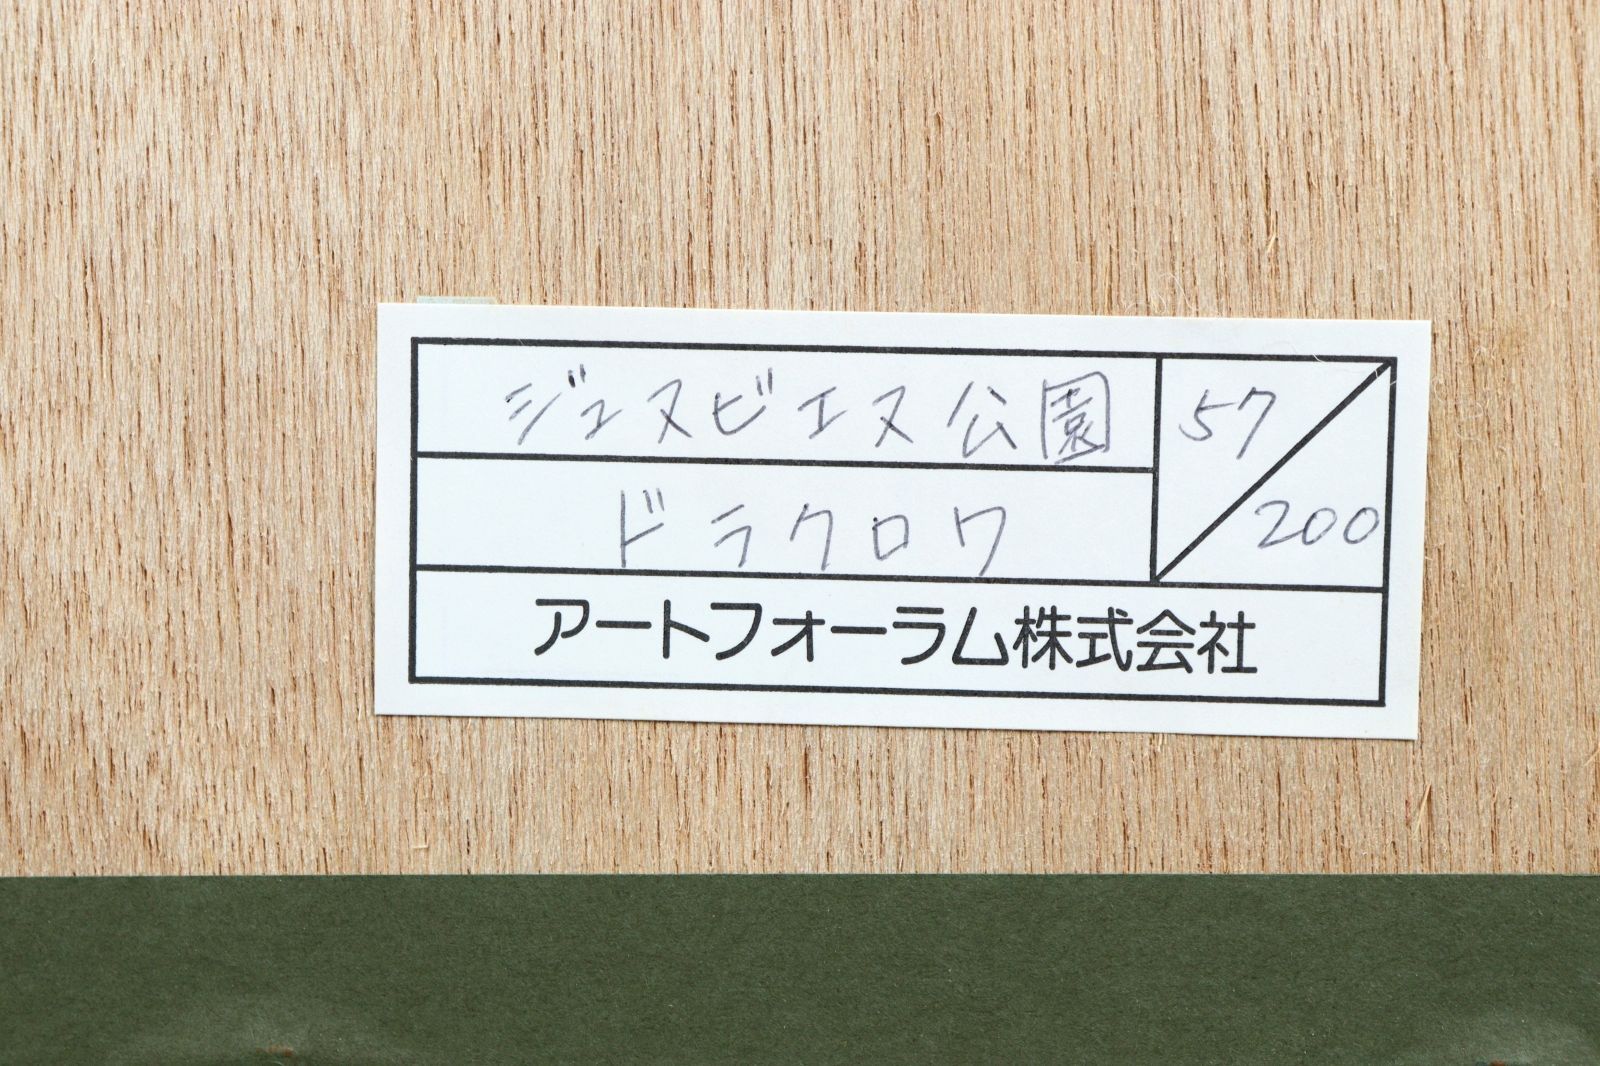 ジュヌビエヌ公園
57/200
ドラクロワ
アートフォーラム株式会社